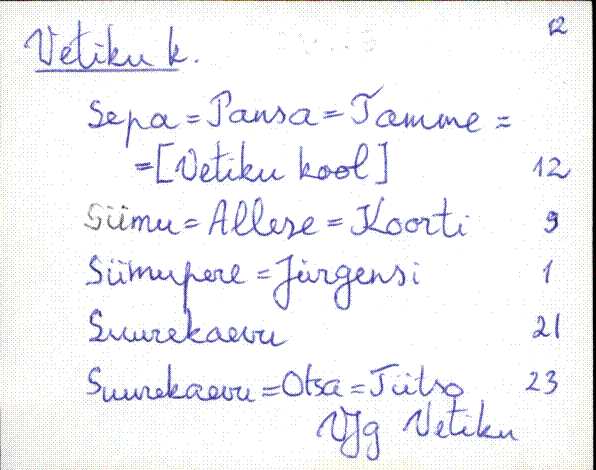 12
Vetiku k.
Sepa = Pansa = Tamme =
= [Vetiku kool] 12
Siimu = Allese = Koorti 9
Siimupere = Jürgensi 1
Suurekaevu 21
Suurekaevu = Otsa = Tiitso 23
VJg Vetiku